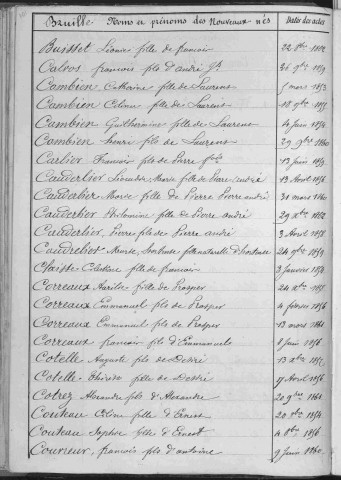 Bruille Noms et prénoms des Nouveaux nés Dates des actes
Buisset Léonie fille de françois 22 8bre
Calvos françois fils d'andré 9bre
Cambien Catherine fille de Laurent mars 1853
Cambien Céline fille de Laurent 18 9bre
Cambien Guilhermine fille de Laurent 4 Juin 1854
Cambien henri fils de Laurent 29 9bre 1860
Carlier François fils de Pierre 13 Juin
Cauderlier Marie fille de Pierre andré 13 Avril 1856
Cauderlier Marie fille de Pierre Pierre andré 31 mars 1860
Cauderlier Philomène fille de Pierre andré 29
Cauderlier, Pierre fils de Pierre andré 3 Avril 1858
Caudrelier Marie, fille naturelle d'hortense 24 9bre
Claisse fille de françois 3 Janvier
Correaux fille de Prosper 24
Correaux Emmanuel fils de Prosper 4 février 1856
Correaux Emmanuel fils de Prosper 13 mars 1861
Correaux françois fils d'Emmanuel 8 Juin 1856
Cotelle Auguste fils de Désiré 13
Cotelle fille de Désiré Avril 1856
Cotrez Alexandre fils d'Alexandre 20 9bre
Couteau Céline fille d'Ernest 20 1854
Couteau Sophie fille d'Ernest 4 1856
Couvreur, françois fils d'antoine 9 Juin 1860